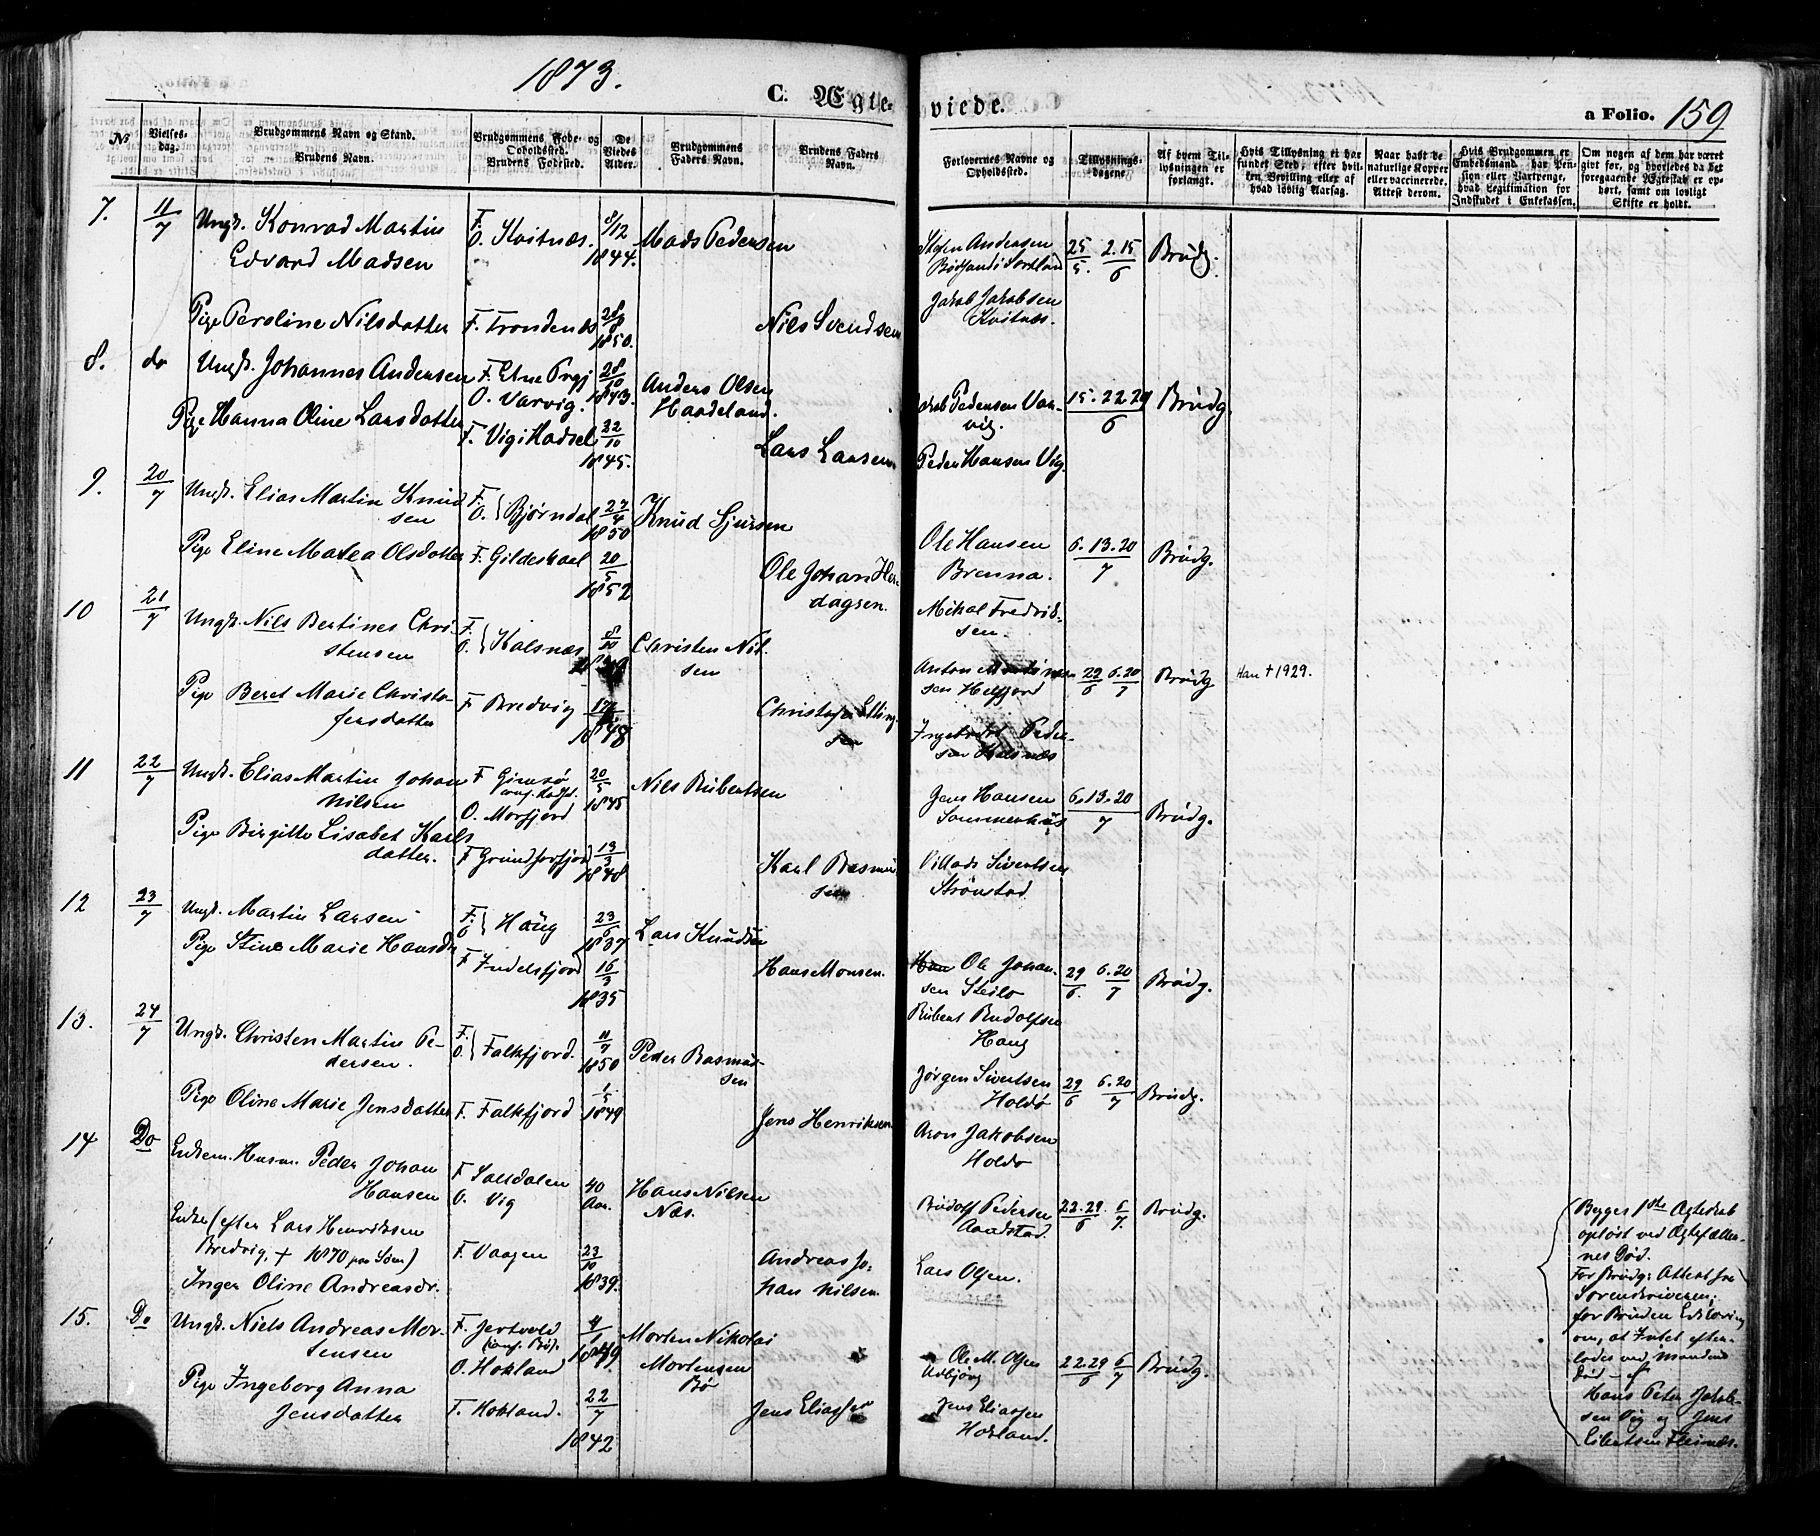 1873.
C. Ægteviede.
a Folio. 159
№
Vielses-dag.
Brudgommens Navn og Stand.
Brudens Navn.
Brudgommens Føde- og Opholdssted.
Brudens Fødested.
De Viedes Alder.
Brudgommens Faders Navn.
Brudens Faders Navn.
Forlovernes Navne og Opholdssted.
Tillysnings-dagene.
Af hvem Tillysningen er forlangt.
Hvis Tillysning ei har fundet Sted, efter hvilken Bevilling eller af hvad lovlig Aarsag.
Naar havt de naturlige Kopper eller vaccinerede. Attest derom.
Hvis Brudgommen er Embedsmand har Pension eller Vartpenge, hvad Legitimation for Indskudet i Enkekassen.
Om nogen af dem har været gift før, og hvorledes da det foregaaende Ægteskab er ophørt, samt om lovligt Skifte er holdt.
7. 11/7 Ungk. Konrad Martin F. O. Kvitnæs. 8/12 Mads Pedersen Stefen Andersen 25/5. 2.15/6 Brudg.
Edvard Madsen 1844. i Sortland
Jakob Jakobsen
Pige Peroline Nilsdatter F. Trondenæs 28/8 1850. Nils Svendsen Kvitnæs.
8. do Ungk. Johannes Andersen F. Etne Prgj 28/10 Anders Olsen
O. Varvig. 1843. Haadeland. Jakob Pedersen Varvig. 15.22.29/6 Brudg.
Pige Hanna Oline Larsdatter F. Vig i Hadsel 22/10 1845. Lars Larsen Peder Hansen Vig.
9. 20/7 Ungk. Elias Martin Knudsen F. O. Bjørndal 27/4 1850 Knud Sjursen
Ole Hansen 6.13.20/7 Brudg.
Pige Eline Marea Olsdatter F. Gildeskaal 20/5 1852 Ole Johan Herdagsen. Brenna.
Mikal Fredriksen.
10 21/7 Ungk. Nils Bertines Christensen F. O. Kalsnæs 8/10 Christen Nilsen
Anton 29/6 6.20/7 Brudg Han † 1929.
Pige Beret Marie Christofersdatter F Bredvig 1848 Christofer Ellingsen
Ingebrigt Pedersen Kalsnæs
11 22/7 Ungk. Elias Martin Johan Nilsen F Gimsø 20/5 1845 Nils Rubertsen
O. Morfjord
Jens Hansen 6.13.20/7 Brudg.
Sommerhus
Pige Birgitte Lisabet Karlsdatter. F Grundforfjord 13/3 1848 Karl Rasmussen
Villads Sivertsen
Strønstad
12 23/7 Ungk. Martin Larsen F. O Haug 23/6 1837 Lars Knudsen
Pige Stine Marie Hansdr F Indelsfjord 16/3 1835 Hans Monsen. Ole Johansen Steilo 29/6. 6.20/7 Brudg.
Rubert Rudolfsen
Haug
13. 24/7 Ungk. Christen Martin Pedersen. F. O. Falkfjord. 11/7 1850 Peder Rasmussen
Jørgen Sivertsen 29/6 6.20/7 Brudg.
Holdø
Pige Oline Marie Jensdatter F. Falkfjord 1/5 1849 Jens Henriksen
Aron Jakobsen
Holdø
14 Do Enkem. Husm. Peder Johan Hansen F Saltdalen O. Vig 40 Aar. Hans Nilsen Næs.
Rudolf Pedersen 22.29/6 6/7. Brudg.
Aandstad.
Enke (efter Lars Henriksen
Bredvig, † 1870 paa Søen) F. Vaagen 23/10 1839. Andreas Johan Nilsen. Lars Olsen.
Inger Oline Andreasdr.
Begges 1ste Ægteskab
opløst ved Ægtefællernes Død.
For Brudg: Attest fra
Sorenskriveren;
for Bruden Erklæring
om, at Intet efterlodes ved Mandens
Død - af
Hans Peter Jakobsen Vig og Jens
Eilertsen Fleines.
15. Do Ungk. Niels Andreas Mortensen F. Jertvold 4/1 1849. Morten Nikolai Mortensen Bø
O. Hokland
Ole M. Olsen 22.29/6 6/7 Brudg.
Pige Ingeborg Anna Jensdatter F. Hokland. 22/7 1842 Jens Eliassen
Jens Eliassen
Hokland.